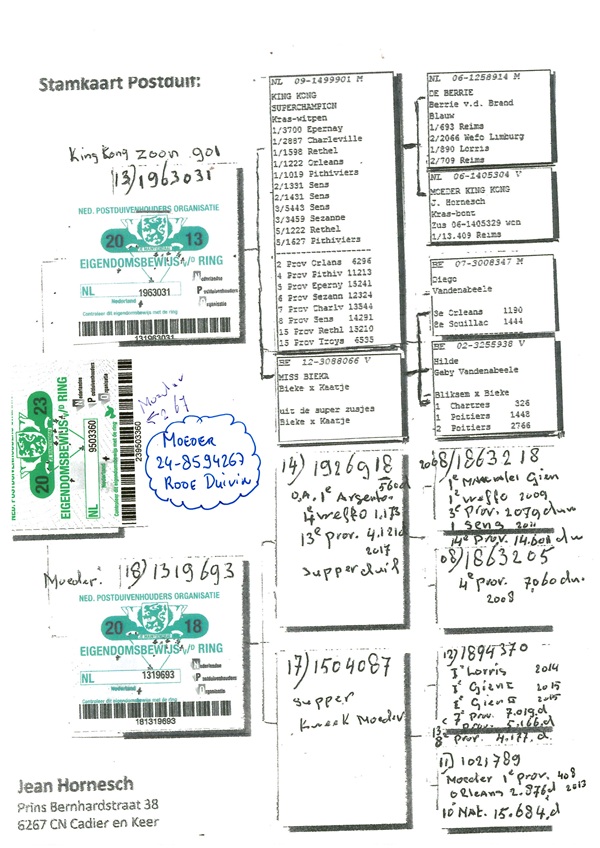 Stamkaart Postduif:
King Kong zoon 901
13) 1963031
NED. POSTDUIVENHOUDERS ORGANISATIE
20 13
EIGENDOMSBEWIJS v/o RING
NL
1963031
Nederland
Nederlandse
Postduivenhouders
Organisatie
Controleer dit eigendomsbewijs met de ring
131963031
NL 09-1499901 M
KING KONG
SUPERCHAMPION
Kras-witpen
1/3700 Epernay
1/2887 Charleville
1/1598 Rethel
1/1222 Orleans
1/1019 Pithiviers
2/1331 Sens
2/1431 Sens
3/5443 Sens
3/3459 Sezanne
5/1222 Rethel
5/1627 Pithiviers
2 Prov Orlans 6296
4 Prov Pithiv 11213
5 Prov Eperny 15241
6 Prov Sezann 12324
7 Prov Charlv 13544
8 Prov Sens 14291
15 Prov Rethl 13210
15 Prov Troys 6535
BE 12-3088066 V
MISS BIEKA
Bieke x Kaatje
uit de super zusjes
Bieke x Kaatje
NL 06-1258914 M
DE BERRIE
Berrie v.d. Brand
Blauw
1/693 Reims
2/2066 Wefo Limburg
1/890 Lorris
2/709 Reims
NL 06-1405304 V
MOEDER KING KONG
J. Hornesch
Kras-bont
Zus 06-1405329 won
1/13.409 Reims
BE 07-3008347 M
Diego
Vandenabeele
3e Orleans 1190
8e Souillac 1444
BE 02-3255938 V
Hilde
Gaby Vandenabeele
Bliksem x Bieke
1 Chartres 326
1 Poitiers 1448
2 Poitiers 2766
20 23
EIGENDOMSBEWIJS v/o RING
NL
9503360
Nederlandse
Postduivenhouders
Organisatie
Controleer dit eigendomsbewijs met de ring
239503360
Moeder
267
MOEDER
24-8594267
RODE DUIVIN
Moeder: 18) 1319693
NED. POSTDUIVENHOUDERS ORGANISATIE
20 18
EIGENDOMSBEWIJS v/o RING
NL
1319693
Nederland
Nederlandse
Postduivenhouders
Organisatie
Controleer dit eigendomsbewijs met de ring
181319693
14) 1926918
5600
O.A. 1e Argenton
1e weffo 1.173
13e prov. 4.121d
2017
Supperduif
17) 1504087
Supper
kweek Moeder
2008/1863218
Gien
1e weffo 2009
3e prov. 2079
1 Sens 2011
14e prov. 14.600
08) 1863205
4e prov. 7,060
2008
12) 1894370
1e Lorris 2014
1e Gien 2015
1e Gien 2015
7e prov. 7.019d
prov. 5.166.d
8e prov. 4.177.d
11) 1021789
Moeder 1e prov. 408
Orleans 2.876d 2013
10 Nat. 15.684.d
Jean Hornesch
Prins Bernhardstraat 38
6267 CN Cadier en Keer